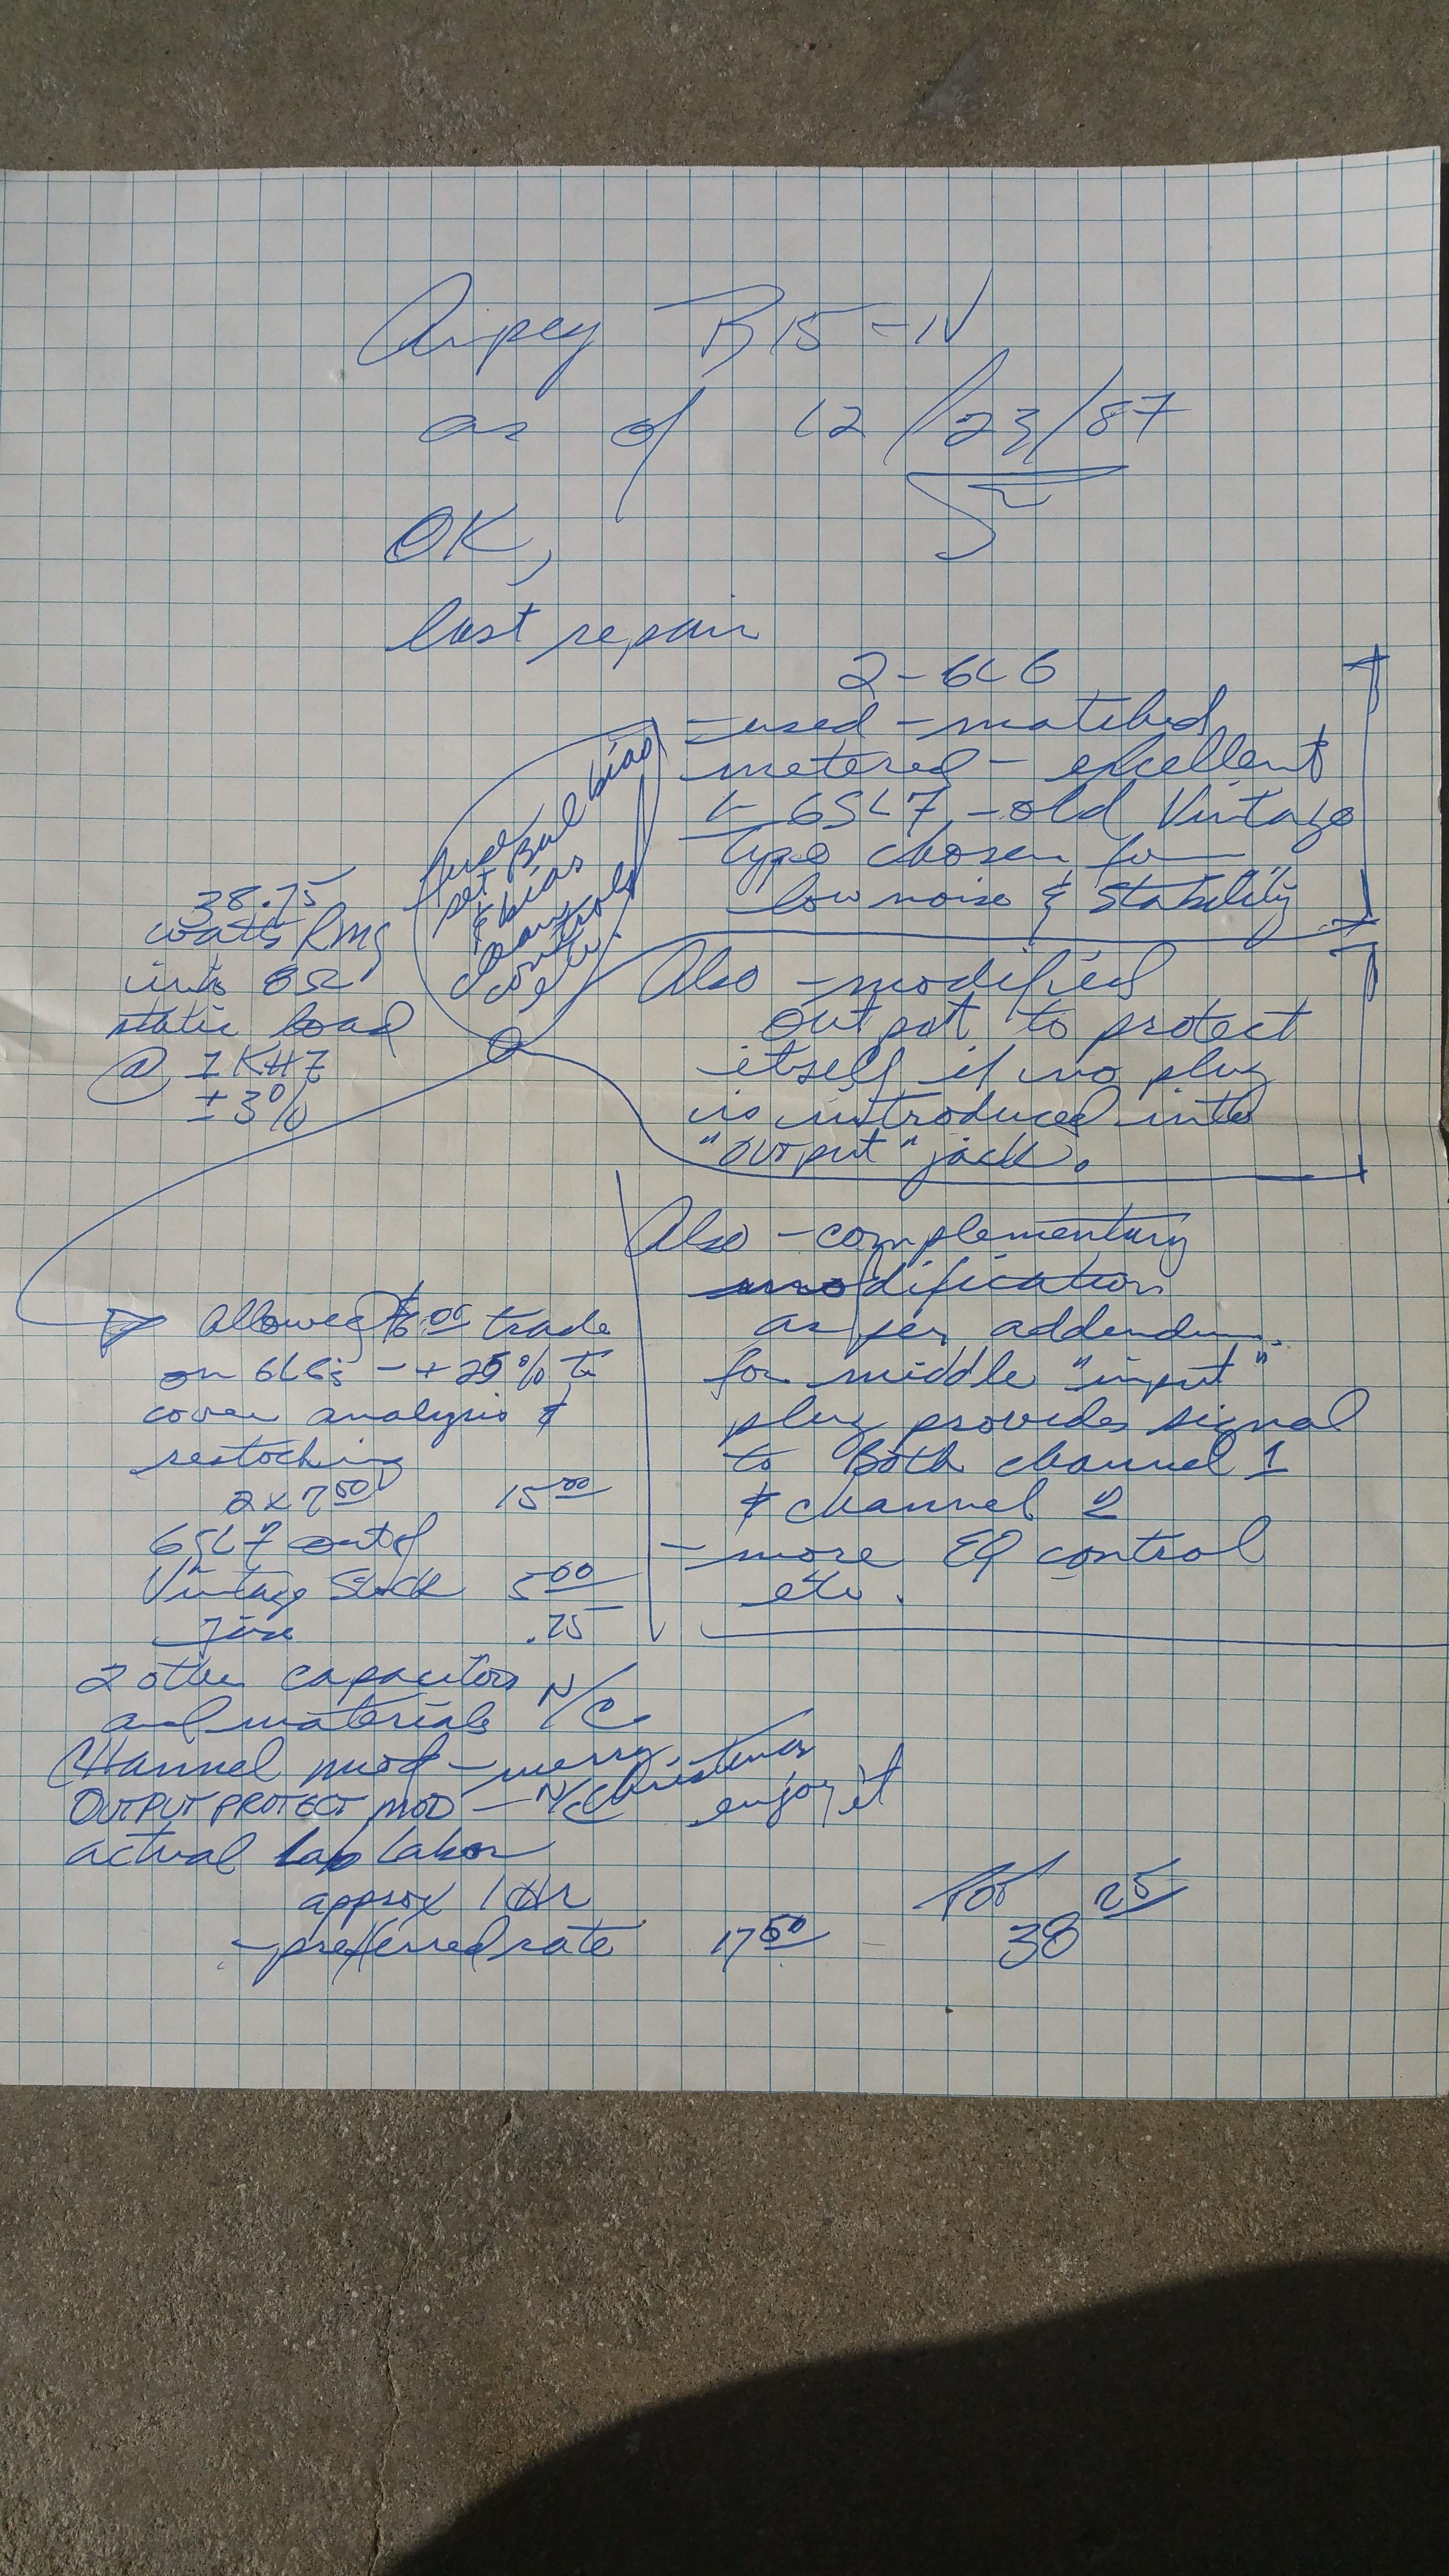 Ampeg B15-N
as of 12/23/87
OK,
last repair
2-6L6
- used - matched
metered - excellent
6SL7 - old Vintage
type chosen for
low noise & stability
set Bal bias
& bias
clean
controls
etc.
38.75
watts RMS
into 8Ω
static load
@ 1KHZ
±3%
Also - modified
output to protect
itself if no plug
is introduced into
"output" jack.
Also - complementary
modification
as per addendum
for middle "input"
plug provides signal
to Both channel 1
& channel 2
- more EQ control
etc.
allowed $6.00 trade
on 6L6s - + 25% to
cover analysis &
restocking
2 x 7.50 15.00
6SL7 out of
Vintage Stock 5.00
Fuse .75
2 other capacitors
and materials N/C
CHannel mod - merry Christmas
enjoy it
OUTPUT PROTECT MOD - N/C
actual lab labor
approx 1 Hr
- preferred rate 17.50
Tot 38.25